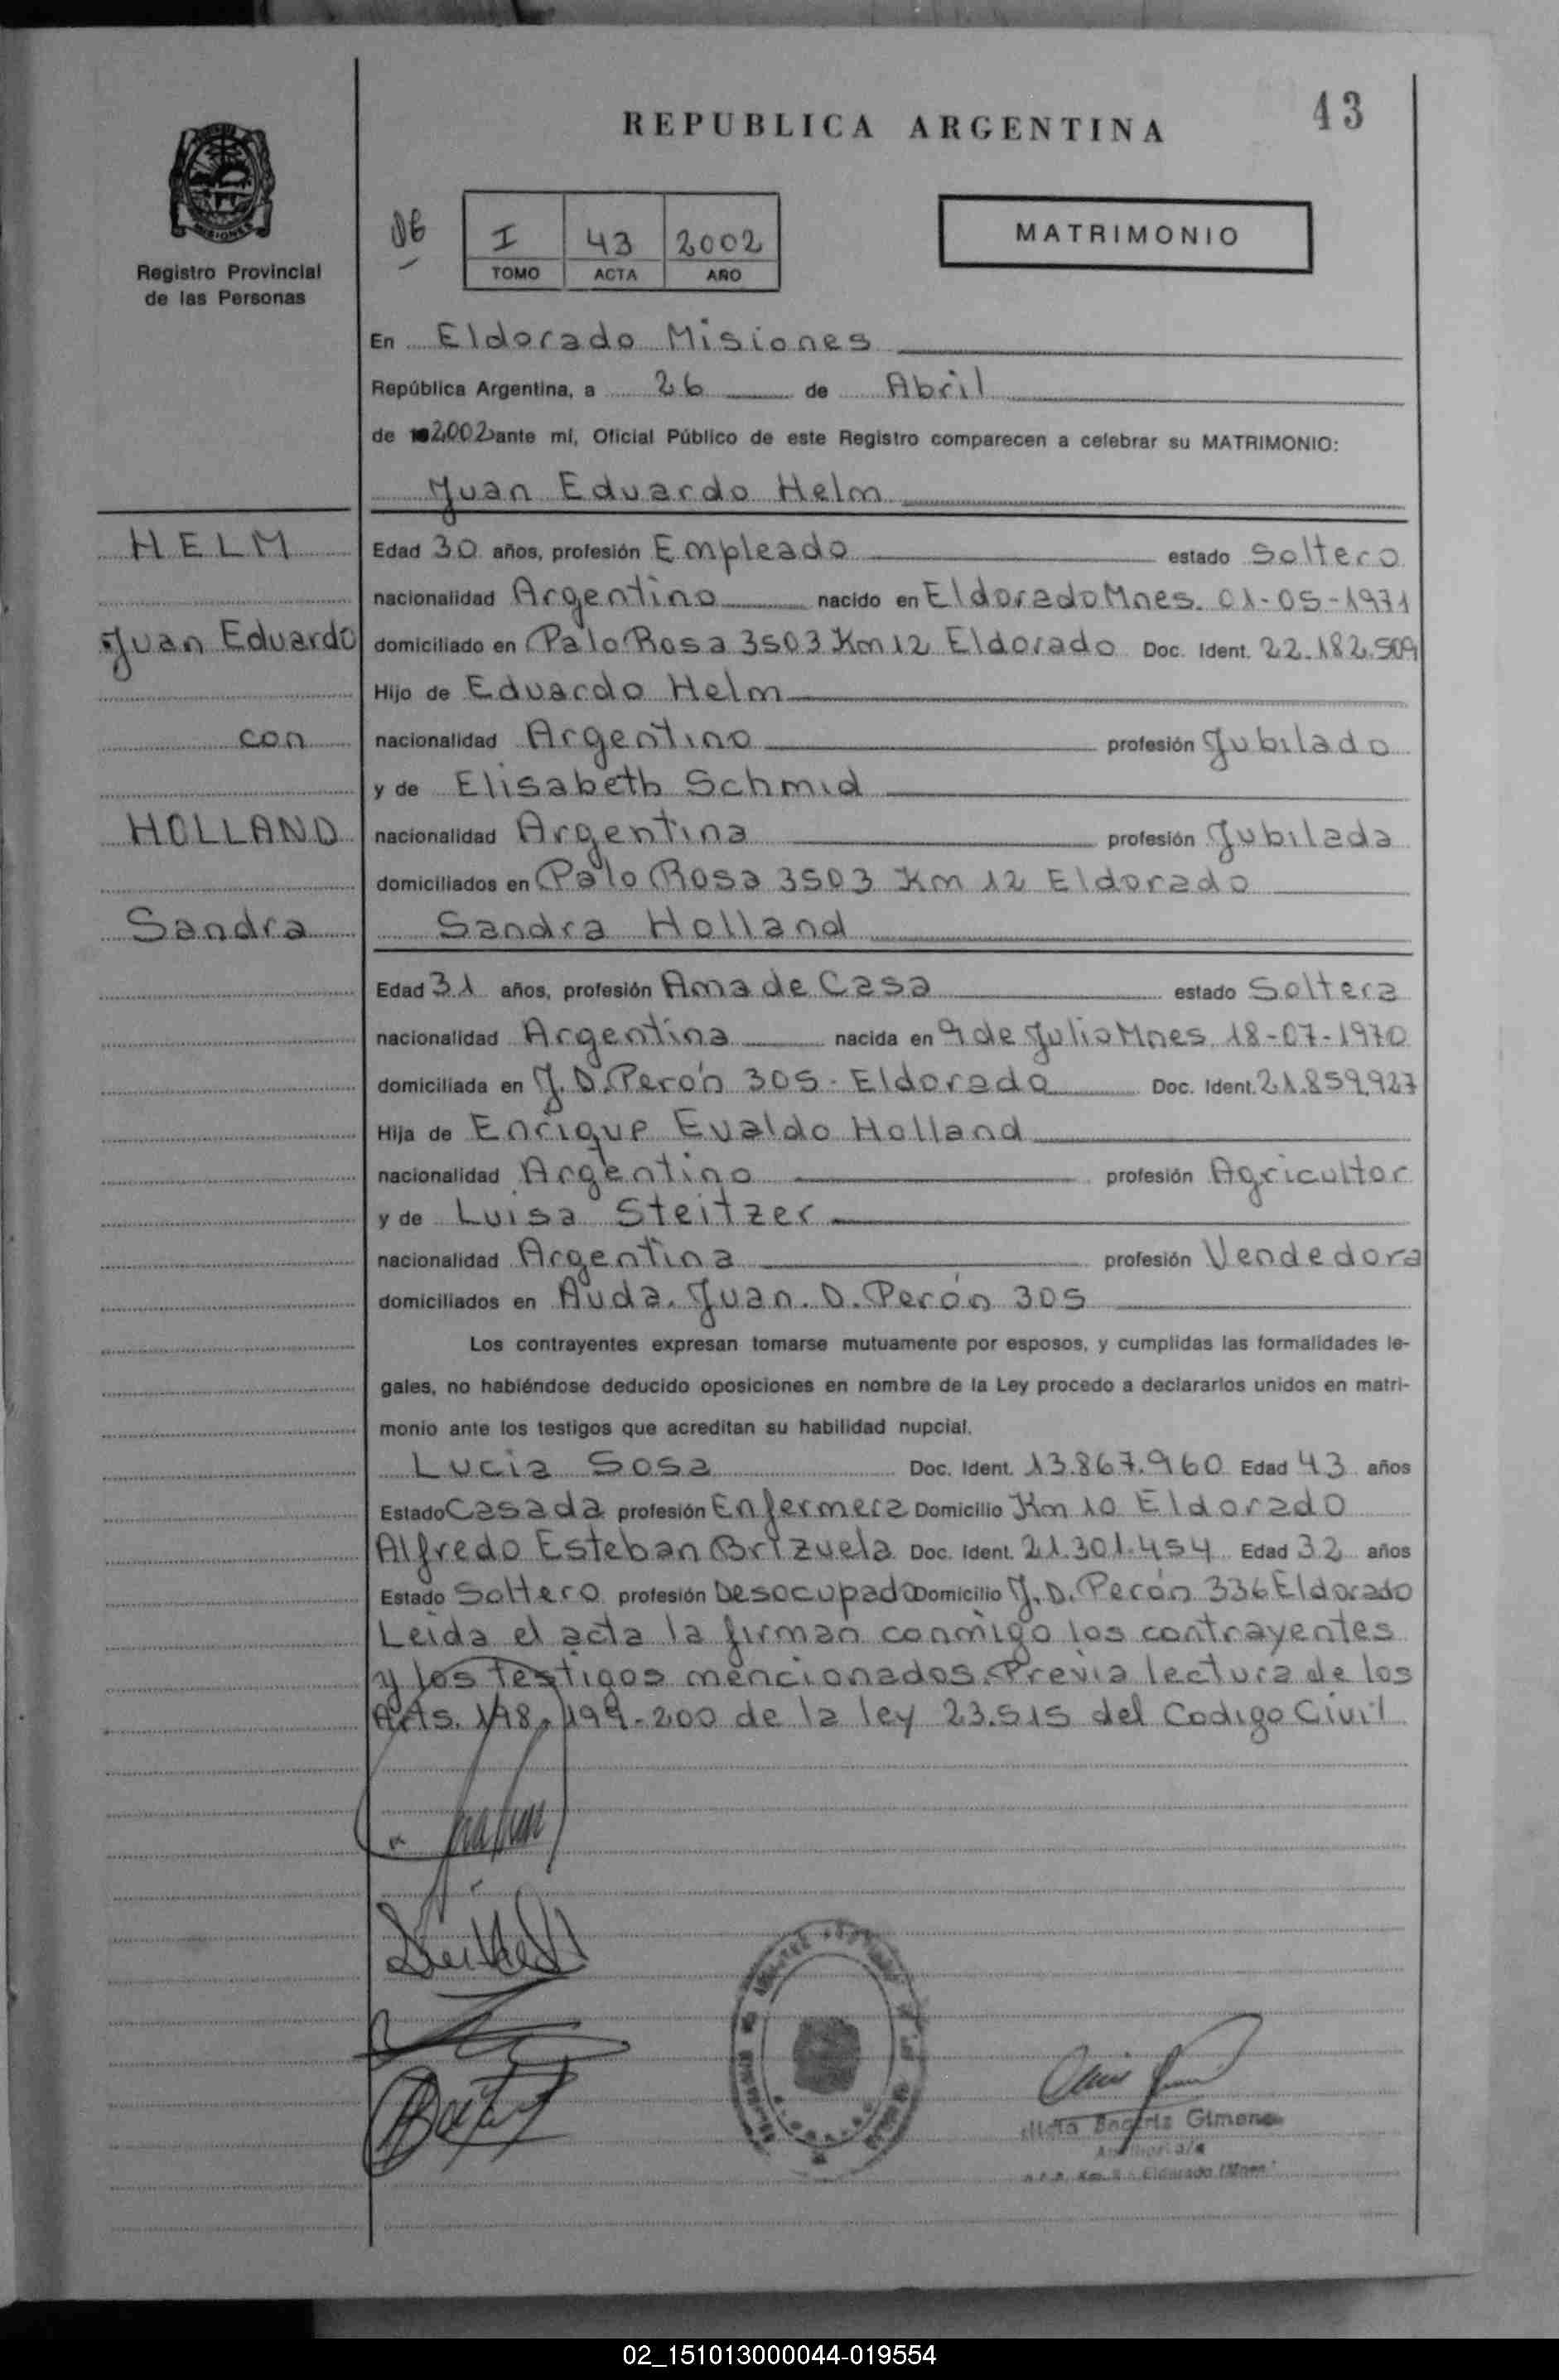 43
REPUBLICA ARGENTINA
MISIONES
Registro Provincial
de las Personas
I 43 2002
TOMO ACTA AÑO
MATRIMONIO
En Eldorado Misiones
República Argentina, a 26 de Abril
de 2002 ante mí, Oficial Público de este Registro comparecen a celebrar su MATRIMONIO:
Juan Eduardo Helm
HELM
Edad 30 años, profesión Empleado estado Soltero
nacionalidad Argentino nacido en Eldorado Mnes. 01-05-1971
Juan Eduardo
domiciliado en Palo Rosa 3503 Km 12 Eldorado Doc. Ident. 22.182.509
Hijo de Eduardo Helm
con
nacionalidad Argentino profesión Jubilado
y de Elisabeth Schmid
HOLLAND
nacionalidad Argentina profesión Jubilada
domiciliados en Palo Rosa 3503 Km 12 Eldorado
Sandra
Sandra Holland
Edad 31 años, profesión Ama de Casa estado Soltera
nacionalidad Argentina nacida en 9 de Julio Mnes 18-07-1970
domiciliada en J. D. Perón 305 - Eldorado Doc. Ident. 21.859.927
Hija de Enrique Evaldo Holland
nacionalidad Argentino profesión Agricultor
y de Luisa Steitzer
nacionalidad Argentina profesión Vendedora
domiciliados en Avda. Juan. D. Perón 305
Los contrayentes expresan tomarse mutuamente por esposos, y cumplidas las formalidades le-
gales, no habiéndose deducido oposiciones en nombre de la Ley procedo a declararlos unidos en matri-
monio ante los testigos que acreditan su habilidad nupcial.
Lucia Sosa Doc. Ident. 13.867.960 Edad 43 años
Estado Casada profesión Enfermera Domicilio Km 10 Eldorado
Alfredo Esteban Brizuela Doc. Ident. 21.301.454 Edad 32 años
Estado Soltero profesión Desocupado Domicilio J. D. Perón 336 Eldorado
Leida el acta la firman conmigo los contrayentes
y los testigos mencionados. Previa lectura de los
Arts. 198, 199-200 de la ley 23.515 del Codigo Civil
Gimena
Eldorado
02_151013000044-019554